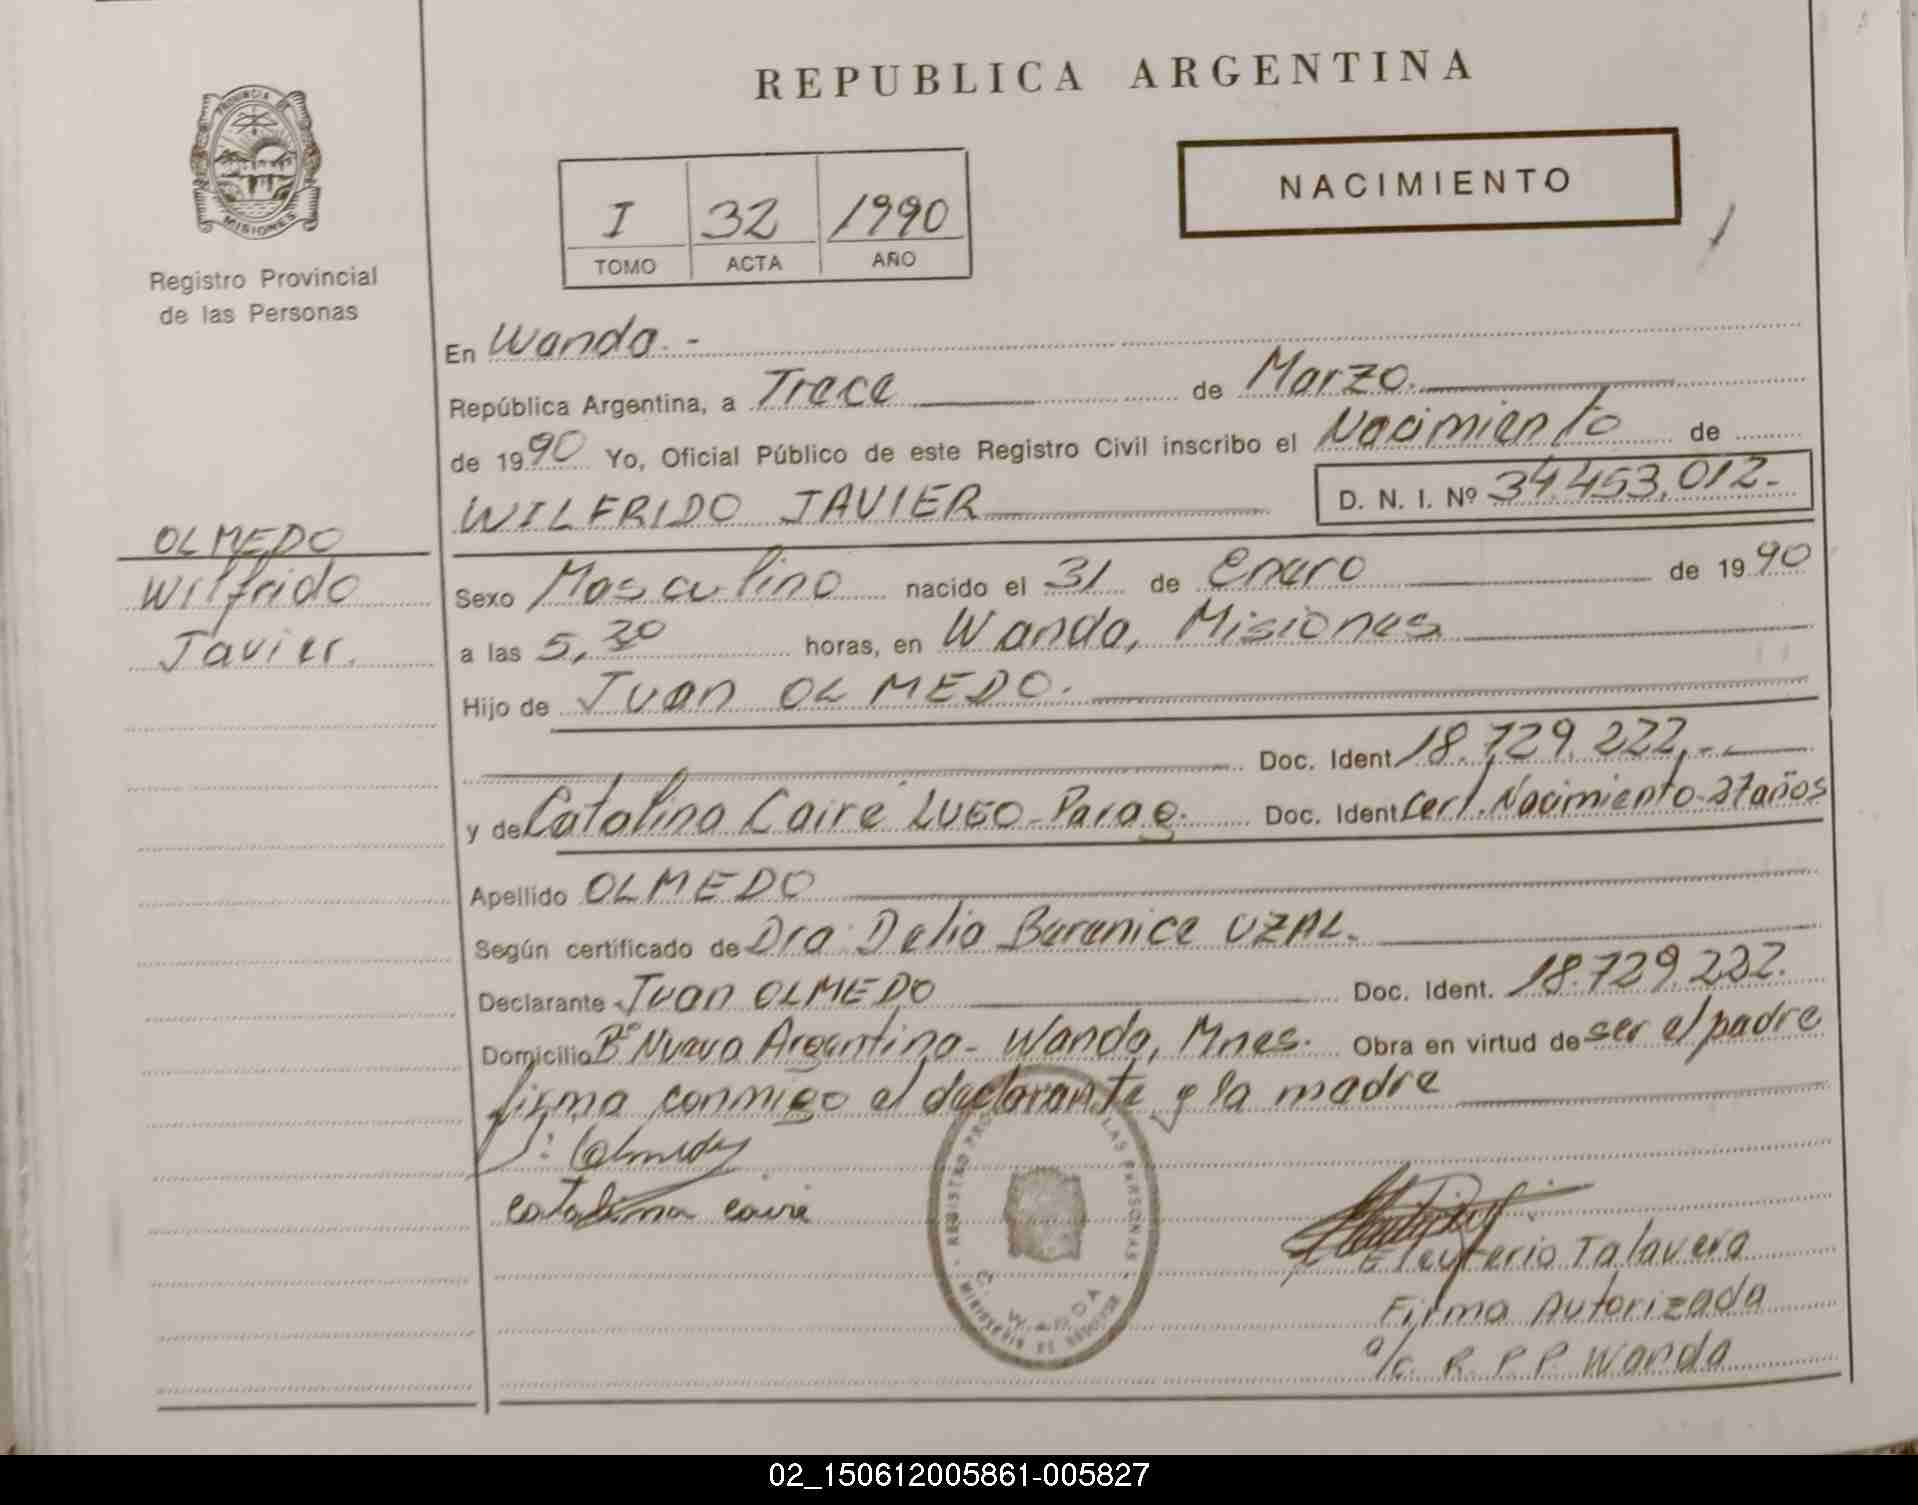 REPUBLICA ARGENTINA
PROVINCIA DE
MISIONES
Registro Provincial
de las Personas
I 32 1990
TOMO ACTA AÑO
NACIMIENTO
En Wanda.-
República Argentina, a Trece de Marzo.
de 1990 Yo, Oficial Público de este Registro Civil inscribo el Nacimiento de
WILFRIDO JAVIER D. N. I. Nº 34.453.012.-
OLMEDO
Wilfrido
Javier.
Sexo Masculino nacido el 31 de Enero de 1990
a las 5,30 horas, en Wanda, Misiones
Hijo de Juan OLMEDO.
Doc. Ident 18.729.222.-
y de Catalina Cairé LUGO-Parag. Doc. Ident Cert. Nacimiento-27años
Apellido OLMEDO
Según certificado de Dra Delia Berenice UZAL.
Declarante Juan OLMEDO Doc. Ident. 18.729.222.
Domicilio Bº Nueva Argentina- Wanda, Mnes. Obra en virtud de ser el padre
firma conmigo el declarante y la madre
J: Olmedo
Catalina Cairé
REGISTRO LAS PERSONAS
WANDA
MINISTERIO DE GOBIERNO
Eleuterio Talavera
Firma Autorizada
a/c. R.P.P. Wanda
02_150612005861-005827